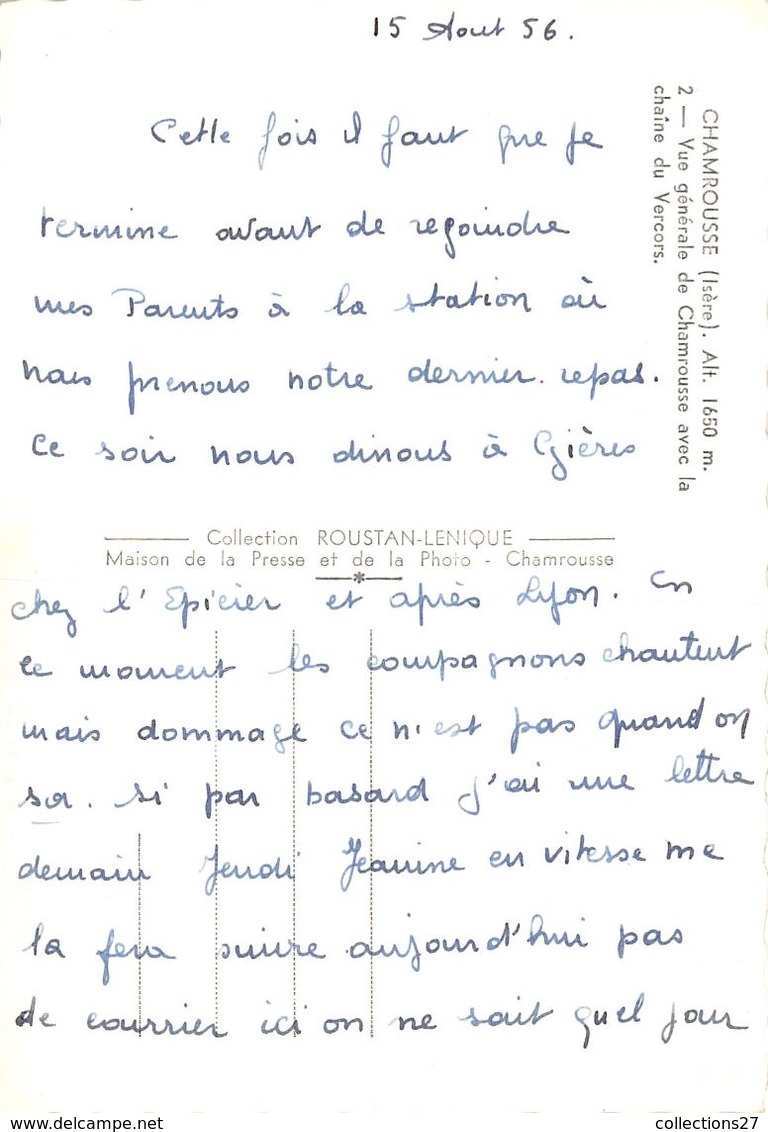 15 Aout 56.
CHAMROUSSE (Isère). Alt. 1650 m.
2 — Vue générale de Chamrousse avec la
chaîne du Vercors.
Cette fois il faut que je
termine avant de regoindre
mes Parents à la station où
nous prenons notre dernier repas.
Ce soir nous dinons à Gières
Collection ROUSTAN-LENIQUE
Maison de la Presse et de la Photo - Chamrousse
chez l'Epicier et après Lyon. En
ce moment les compagnons chantent
mais dommage ce n'est pas quand on
si par hasard j'ai une lettre
demain Jeudi Jeanine en vitesse me
la fera suivre aujourd'hui pas
de courrier ici on ne sait quel jour
https://www.delcampe.net
collections27